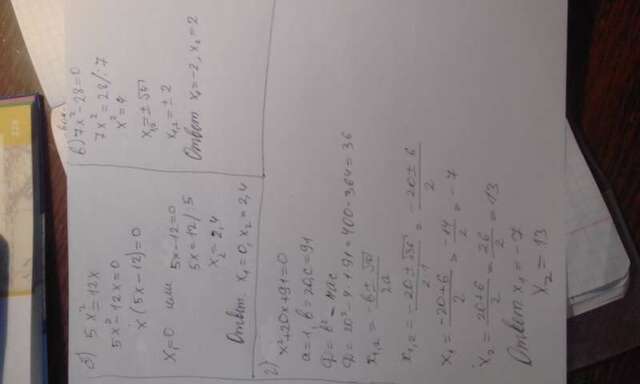 б) 5x²=12x
5x²-12x=0
x(5x-12)=0
x₁=0 или 5x-12=0
5x=12/:5
x₂=2,4
Ответ. x₁=0, x₂=2,4
в) 7x²-28=0
7x²=28/:7
x²=4
x₁,₂=±√
x₁,₂=±2
Ответ x₁=-2, x₂=2
г)
x²+20x+91=0
a=1, b=20, c=91
D=b²-4ac
D=20²-4·1·91=400-364=36
x₁,₂=-b±√D/2a
x₁,₂=-20±√36/2·1=-20±6/2
x₁=-20+6/2=-14/2=-7
x₂=20+6/2=26/2=13
Ответ x₁=-7
x₂=13